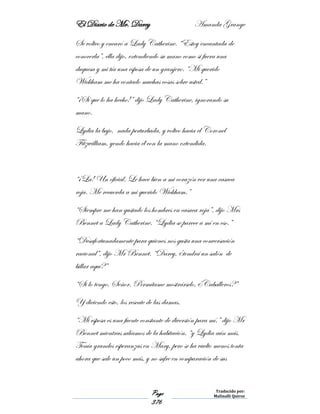 El Diario de Mr. Darcy Amanda Grange
Se volteo y encaró a Lady Catherine. “Estoy encantada de
conocerla”, ella dijo, extendiendo su mano como si fuera una
duquesa y mi tía una esposa de un granjero. “Mi querido
Wickham me ha contado muchas cosas sobre usted.”
“¡Si que lo ha hecho!” dijo Lady Catherine, ignorando su
mano.
Lydia la bajo, nada perturbada, y volteo hacia el Coronel
Fitzwilliam, yendo hacia él con la mano extendida.
“¡La! Un oficial. Le hace bien a mi corazón ver una casaca
roja. Me recuerda a mi querido Wickham.”
“Siempre me han gustado los hombres en casaca roja”, dijo Mrs
Bennet a Lady Catherine. “Lydia se parece a mi en eso.”
“Desafortunadamente para quienes nos gusta una conversación
racional”, dijo Mr Bennet. “Darcy, ¿tendrá un salón de
billar aquí?”
“Si lo tengo, Señor. Permítame mostrárselo, ¿Caballeros?”
Y diciendo esto, los rescate de las damas.
“Mi esposa es una fuente constante de diversión para mi,” dijo Mr
Bennet mientras salíamos de la habitación, “y Lydia aún más.
Tenía grandes esperanzas en Mary, pero se ha vuelto menos tonta
ahora que sale un poco más, y no sufre en comparación de sus
Page
376
Traducido por:
Malinalli Quiroz